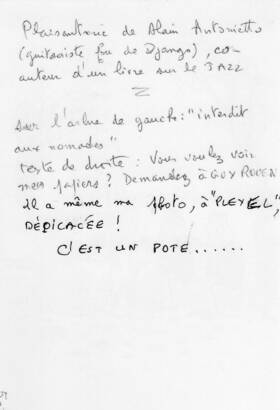 Plaisanterie de Alain Antonietto
(guitariste fou de Django), co-
auteur d'un livre sur le JAZZ
Sur l'arbre de gauche : "interdit
aux nomades"
texte de droite : Vous voulez voir
mes papiers ? Demandez à GUY ROUEN
il a même ma photo, à "PLEYEL",
DÉDICACÉE !
C'EST UN POTE......